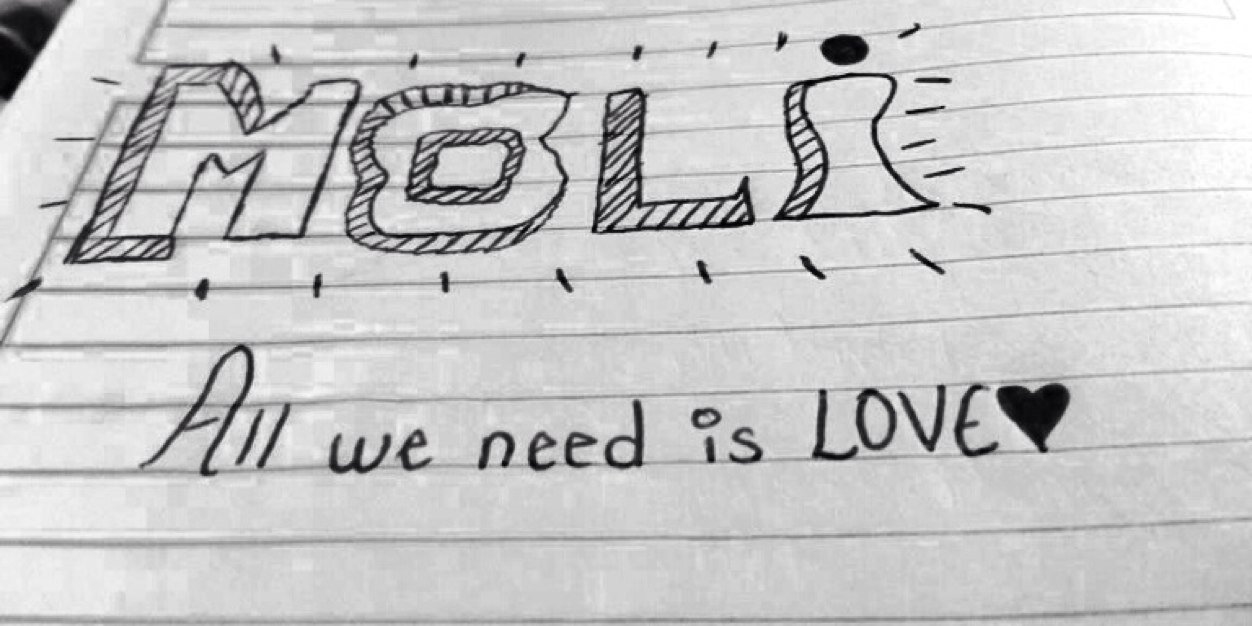 MOLi
All we need is LOVE♥